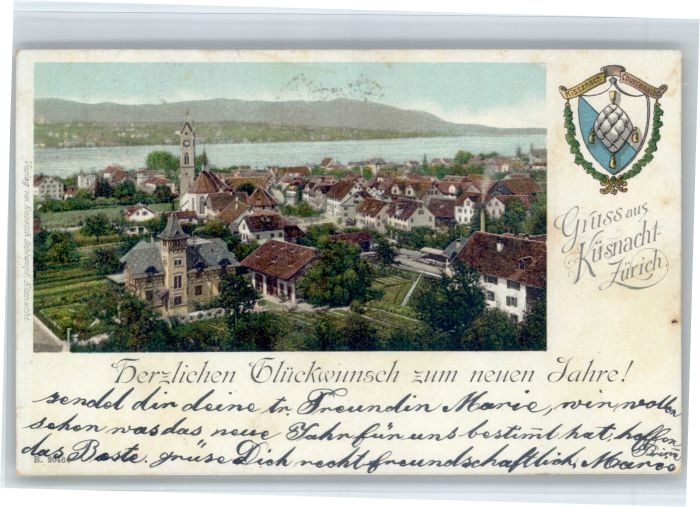 Küsnach
Gruss aus
Küsnacht
Zürich
Herzlichen Glückwunsch zum neuen Jahre!
sendet dir deine tr. Freundin Marie, wir wollen
sehen was das neue Jahr für uns bestim̄t hat, hoffen
das Beste. grüse Dich recht freundschaftlich, Marie